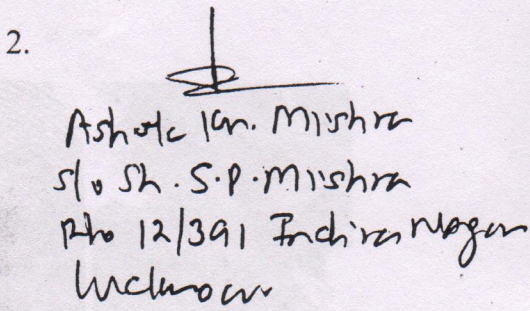 2.
Ashok Kr. Mishra
S/o Sh. S.P. Mishra
R/o 12/391 Indira Nagar
Lucknow